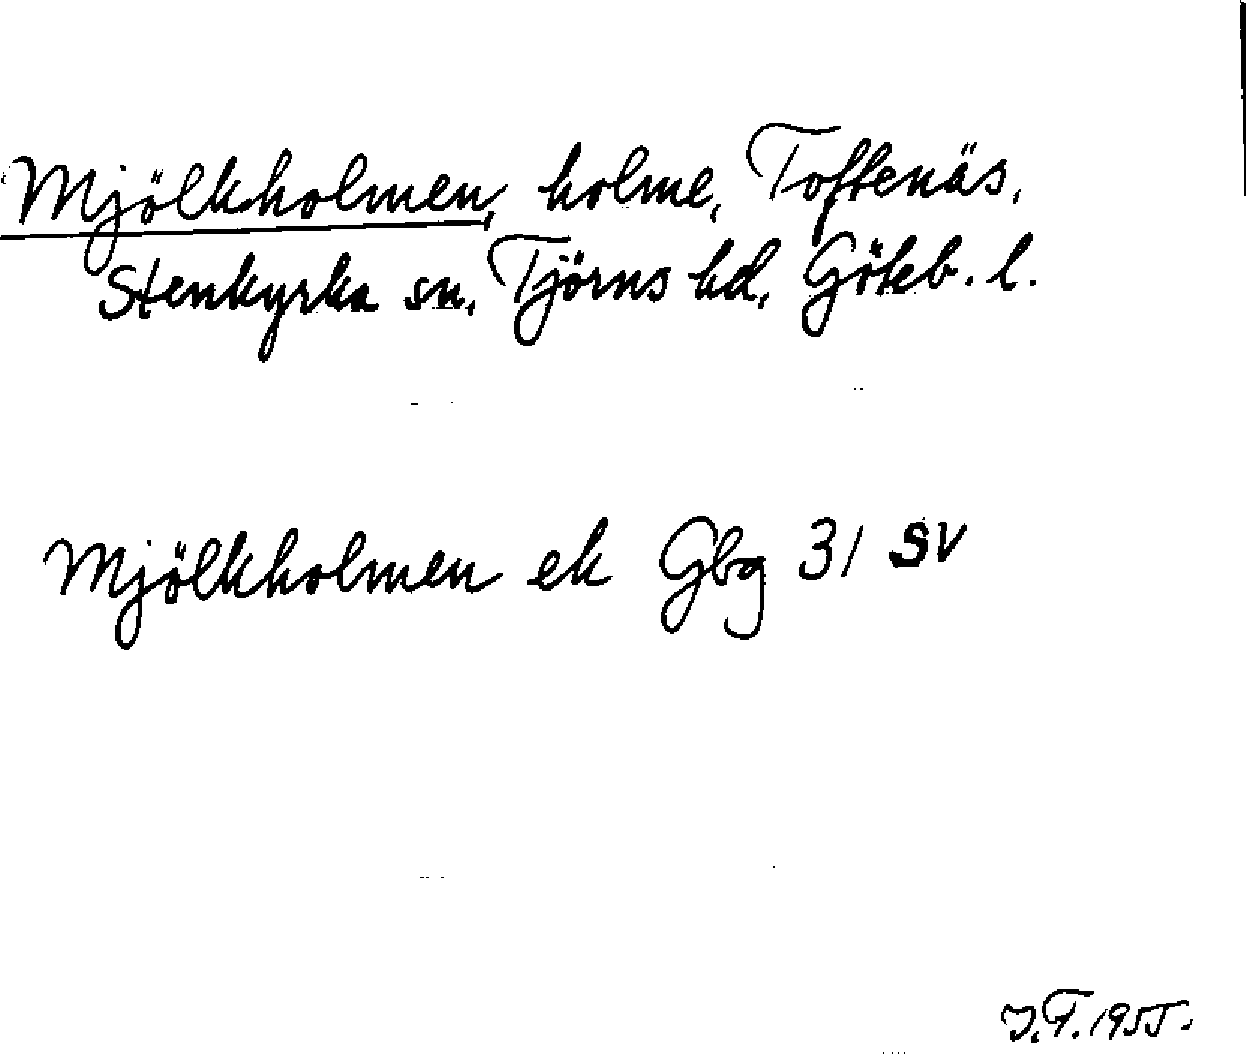 Mjölkholmen, holme, Toftenäs,
Stenkyrka sn, Tjörns hd, Göteb. l.
Mjölkholmen ek Gbg 31 SV
J.F. 1955.